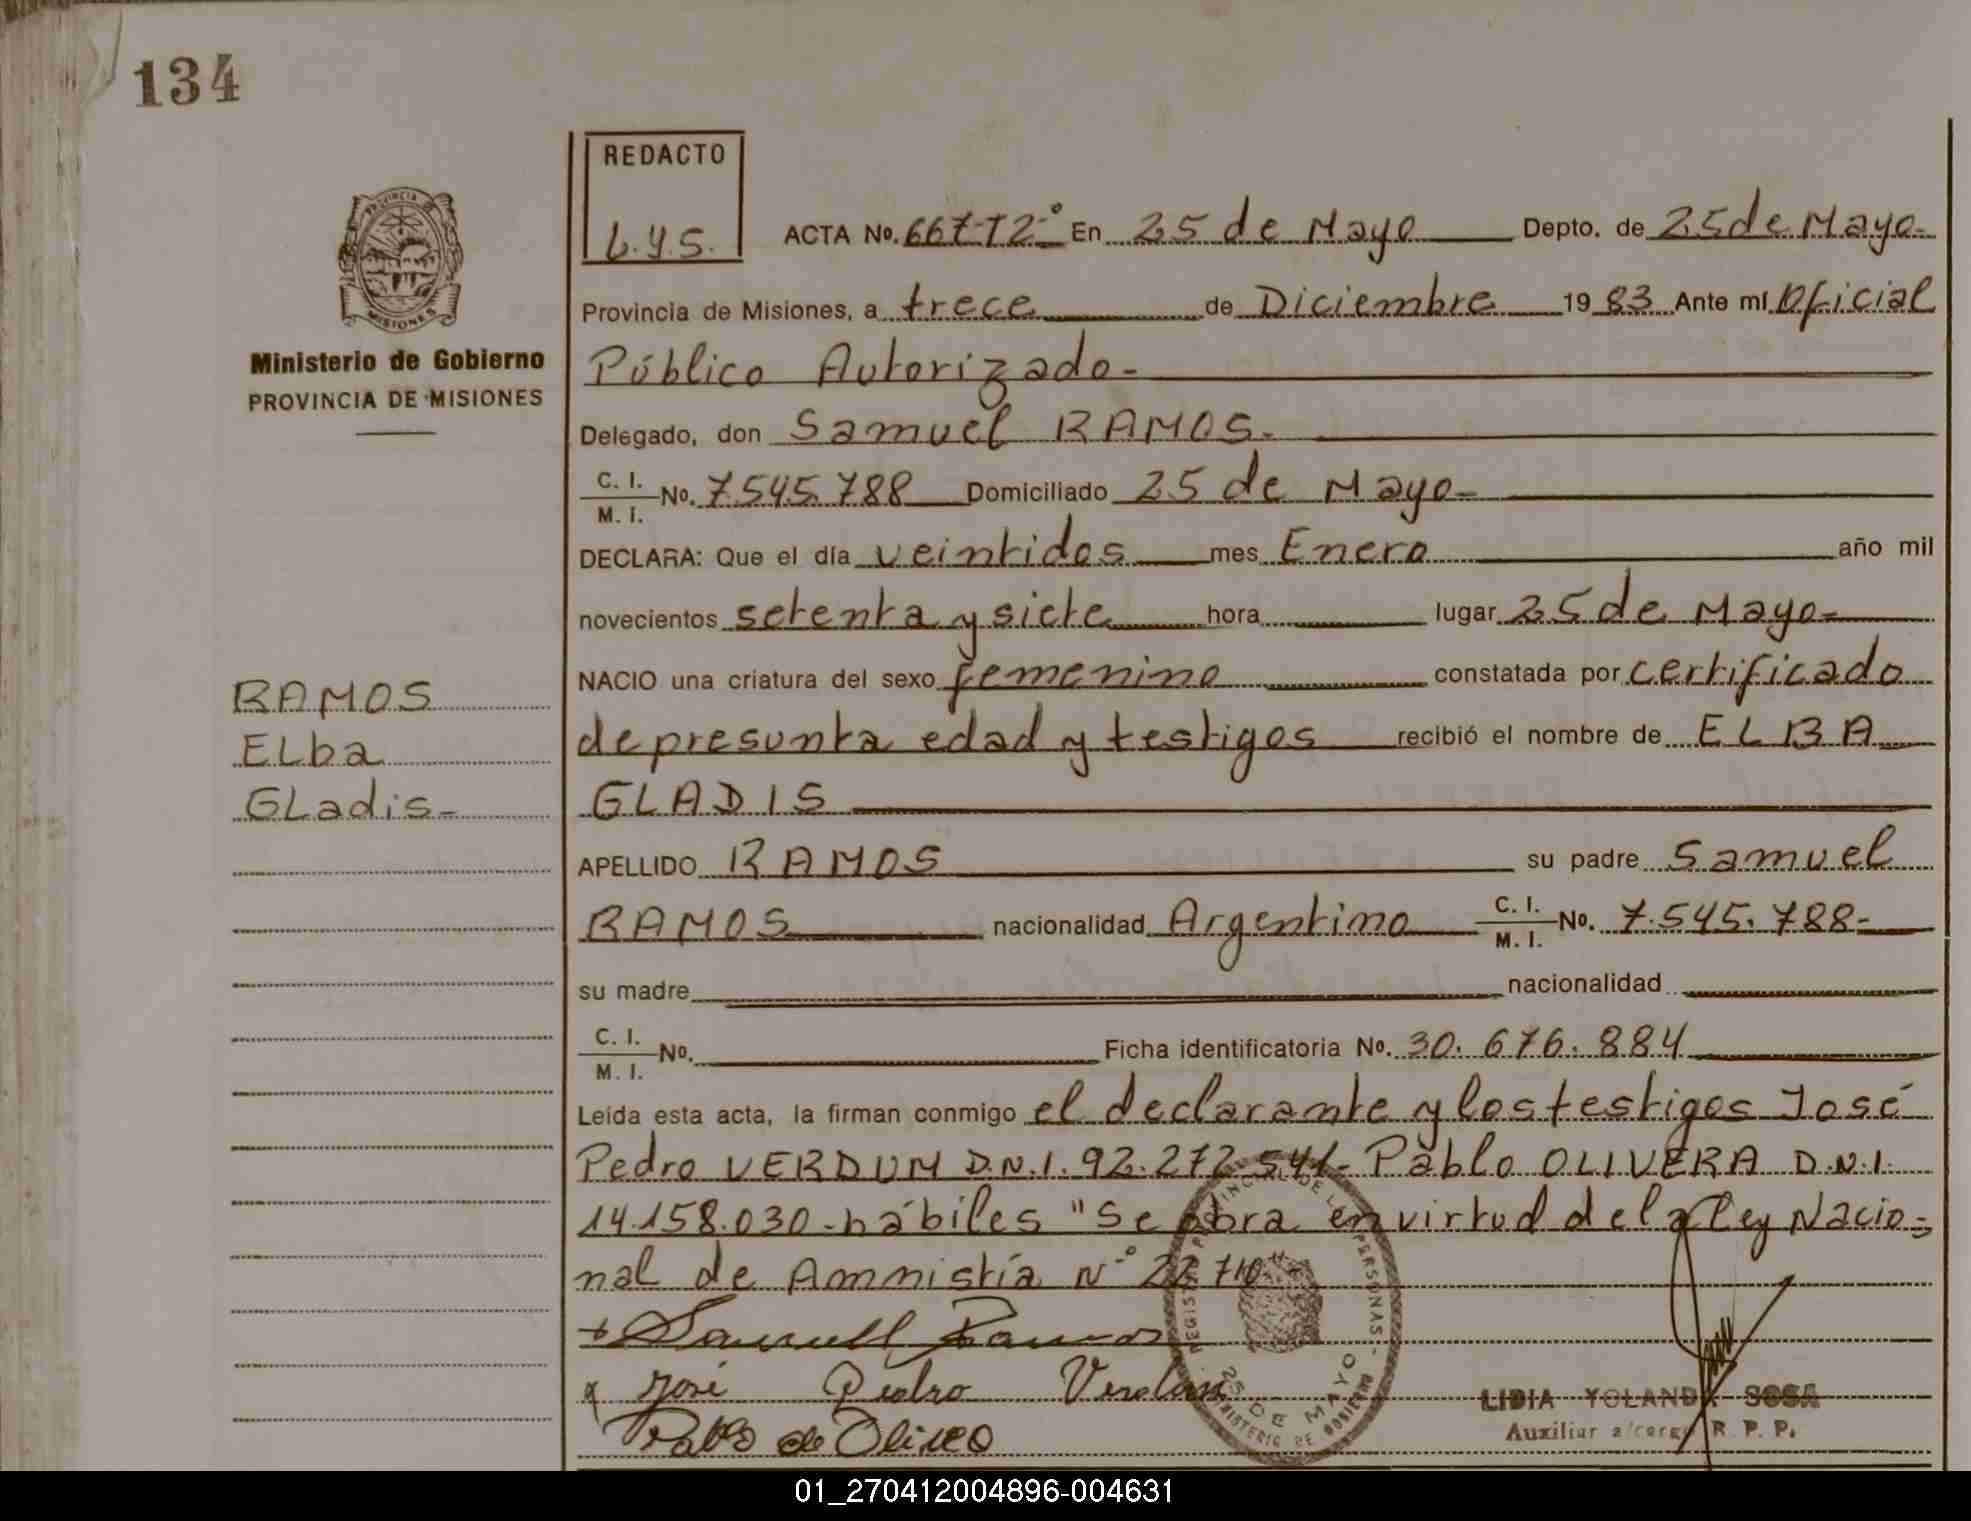 134
REDACTO
L.Y.S.
ACTA No. 667-T2-° En 25 de Mayo Depto. de 25 de Mayo-
Provincia de Misiones, a trece de Diciembre 1983 Ante mí Oficial
Público Autorizado-
Delegado, don Samuel RAMOS.
C. I. M. I. No. 7.545.788 Domiciliado 25 de Mayo-
DECLARA: Que el día veintidos mes Enero año mil
novecientos setenta y siete hora lugar 25 de Mayo-
NACIO una criatura del sexo femenino constatada por certificado
de presunta edad y testigos recibió el nombre de ELBA
GLADIS
APELLIDO RAMOS su padre Samuel
RAMOS nacionalidad Argentino C. I. M. I. No. 7.545.788-
su madre nacionalidad
C. I. M. I. No. Ficha identificatoria No. 30.676.884
Leída esta acta, la firman conmigo el declarante y los testigos José
Pedro VERDUM D.N.I. 92.272.541- Pablo OLIVERA D.N.I.
14.158.030-hábiles "Se obra en virtud de la Ley Nacio-
nal de Amnistía N° 22.710"-
Samuell Ramos
José Pedro Verdun
Pablo de Oliveo
LIDIA YOLANDA SOSA
Auxiliar a/cargo R. P. P.
REGISTRO PROVINCIAL DE LAS PERSONAS
25 DE MAYO
MINISTERIO DE GOBIERNO
PROVINCIA DE
MISIONES
Ministerio de Gobierno
PROVINCIA DE MISIONES
RAMOS
ELba
GLadis-
01_270412004896-004631